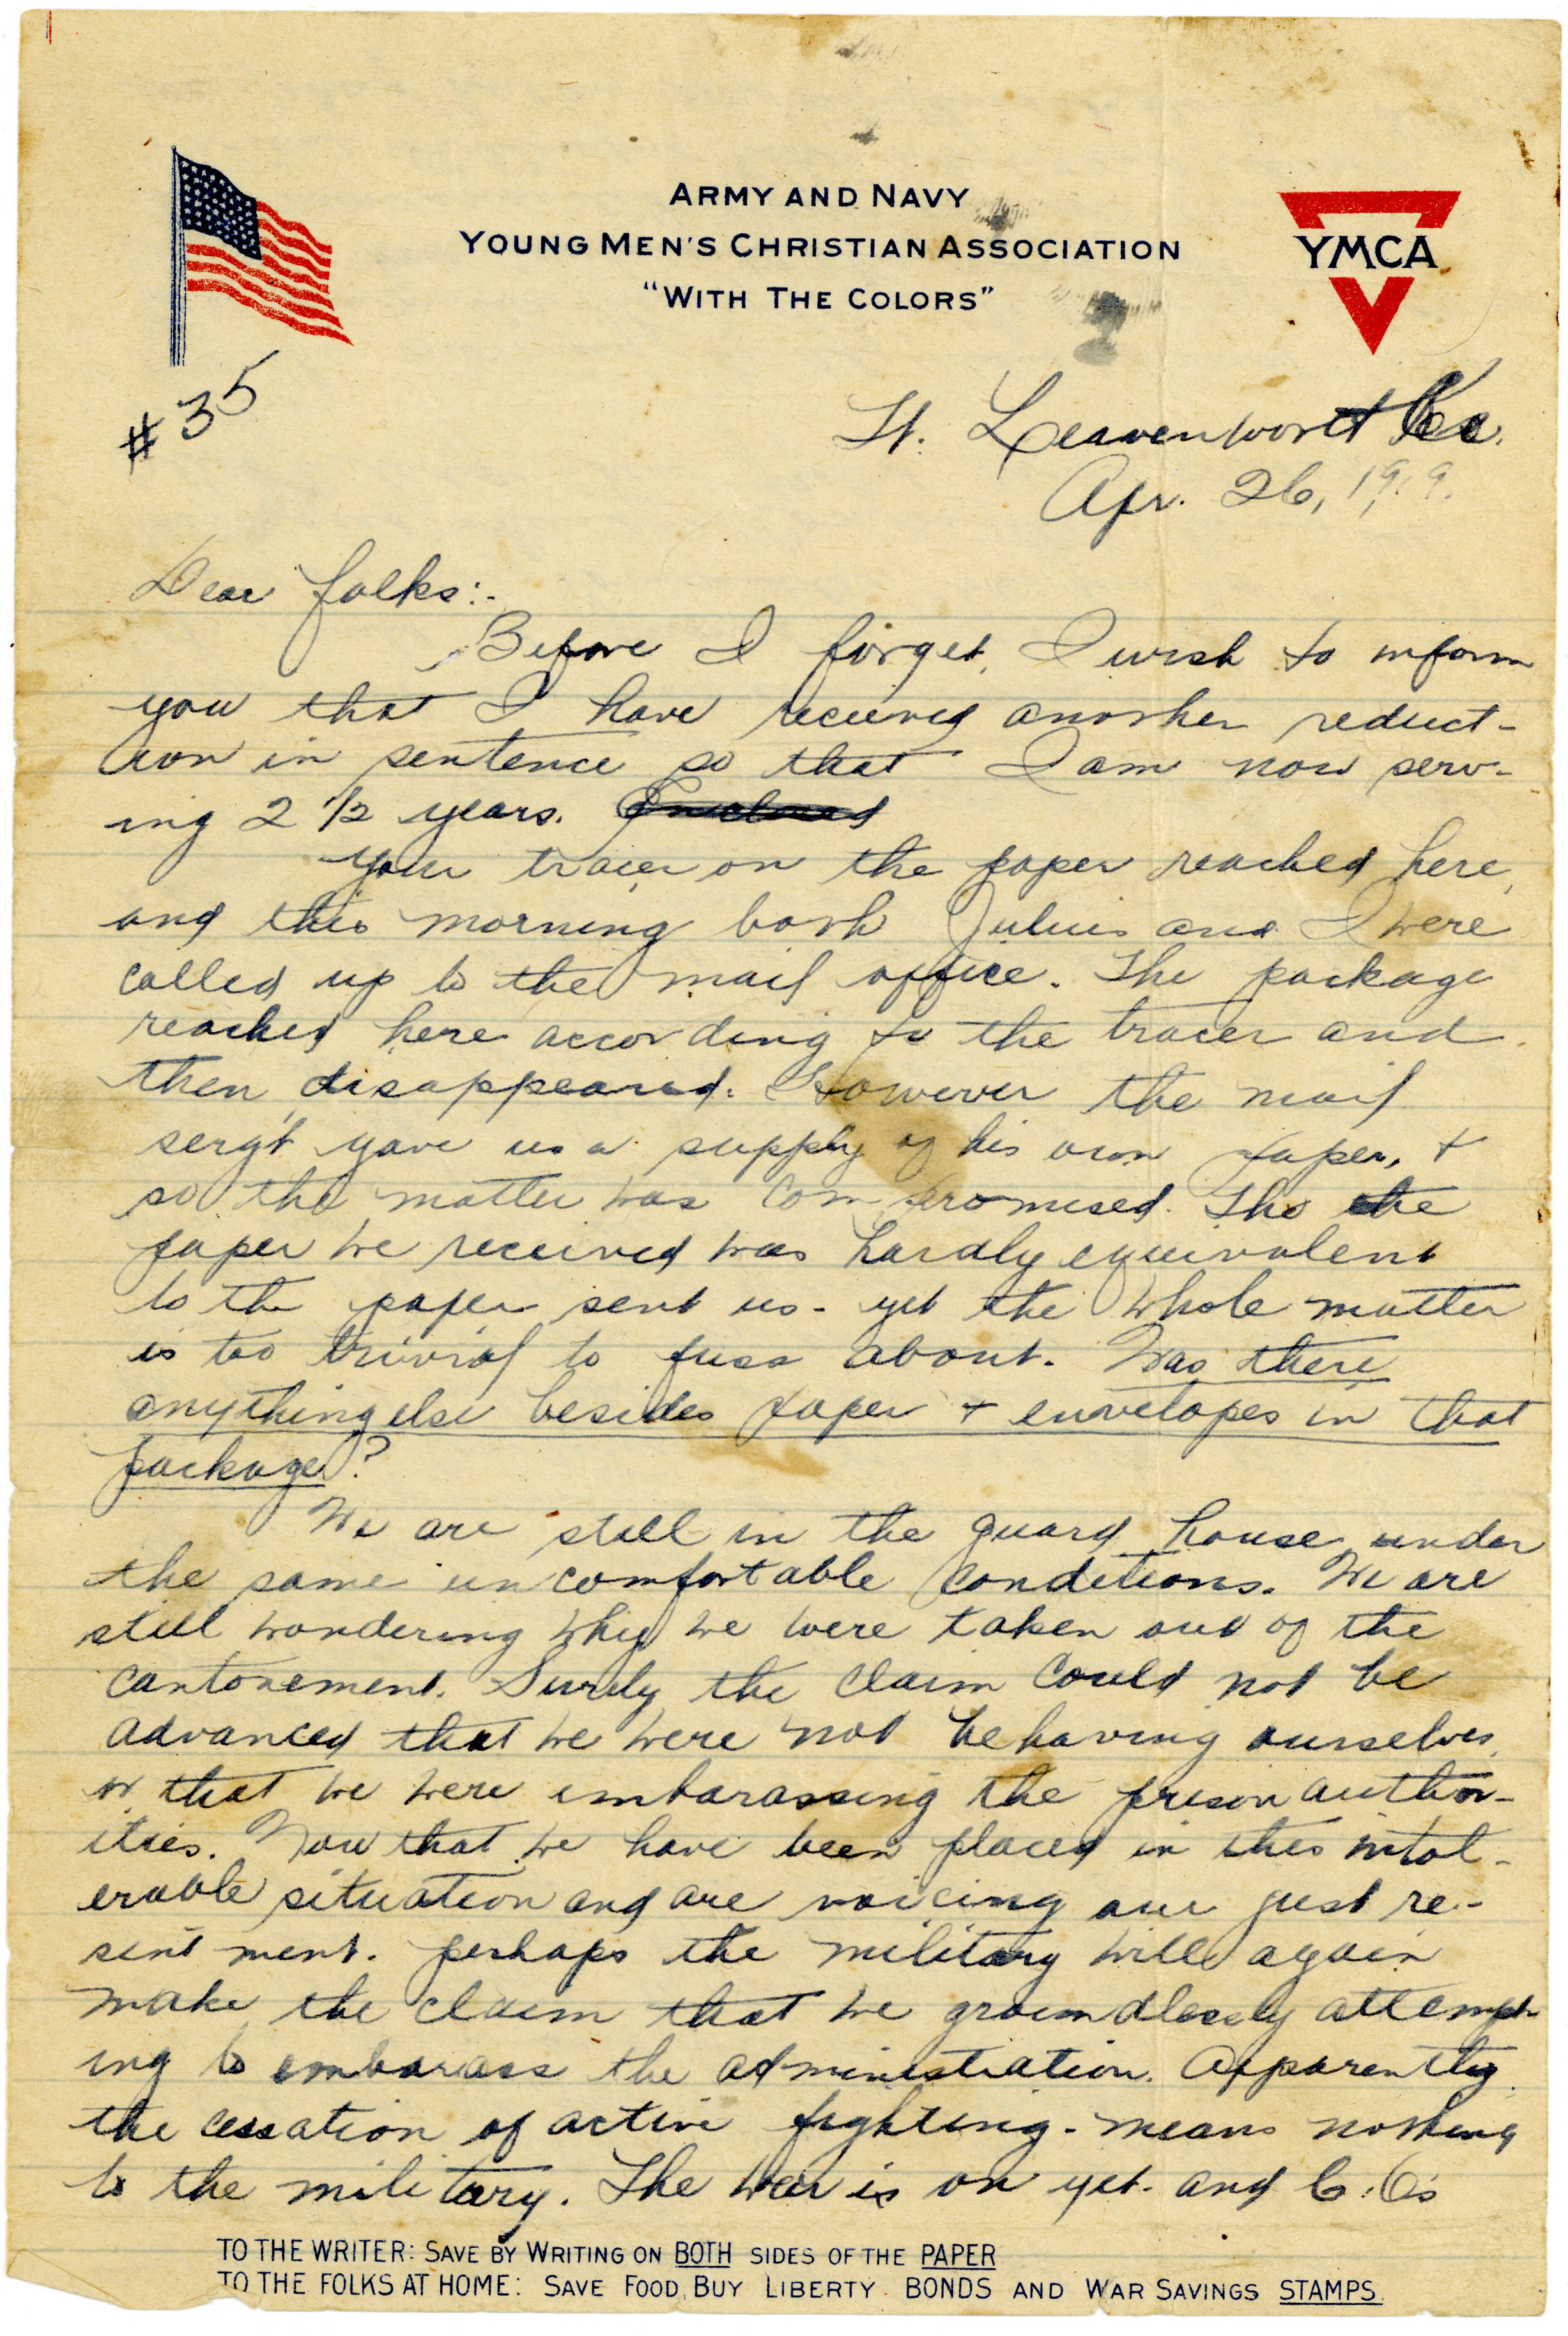 ARMY AND NAVY
YOUNG MEN'S CHRISTIAN ASSOCIATION
"WITH THE COLORS"
YMCA
#35
Ft. Leavenworth Ks.
Apr. 26, 1919.
Dear folks:-
Before I forget, I wish to inform
you that I have received another reduct-
ion in sentence so that I am now serv-
ing 2 1/2 years.
Your tracer on the paper reached here,
and this morning both Julius and I were
called up to the mail office. The package
reached here according to the tracer and
then disappeared. However the mail
serg't gave us a supply of his own paper, +
so the matter was compromised. Tho the
paper we received was hardly equivalent
to the paper sent us - yet the whole matter
is too trivial to fuss about. Was there
anything else besides paper + envelopes in that
package?
We are still in the guard house under
the same uncomfortable conditions. We are
still wondering why we were taken out of the
cantonement. Surely the claim could not be
advanced that we were not behaving ourselves,
or that we were embarassing the prison author-
ities. Now that we have been placed in this intol-
erable situation and are voicing our just re-
sentment. perhaps the military will again
make the claim that we groundlessly attempt-
ing to embarass the administration. Apparently
the cessation of active fighting - means nothing
to the military. The war is on yet - and C.O's
TO THE WRITER: SAVE BY WRITING ON BOTH SIDES OF THE PAPER
TO THE FOLKS AT HOME: SAVE FOOD, BUY LIBERTY BONDS AND WAR SAVINGS STAMPS